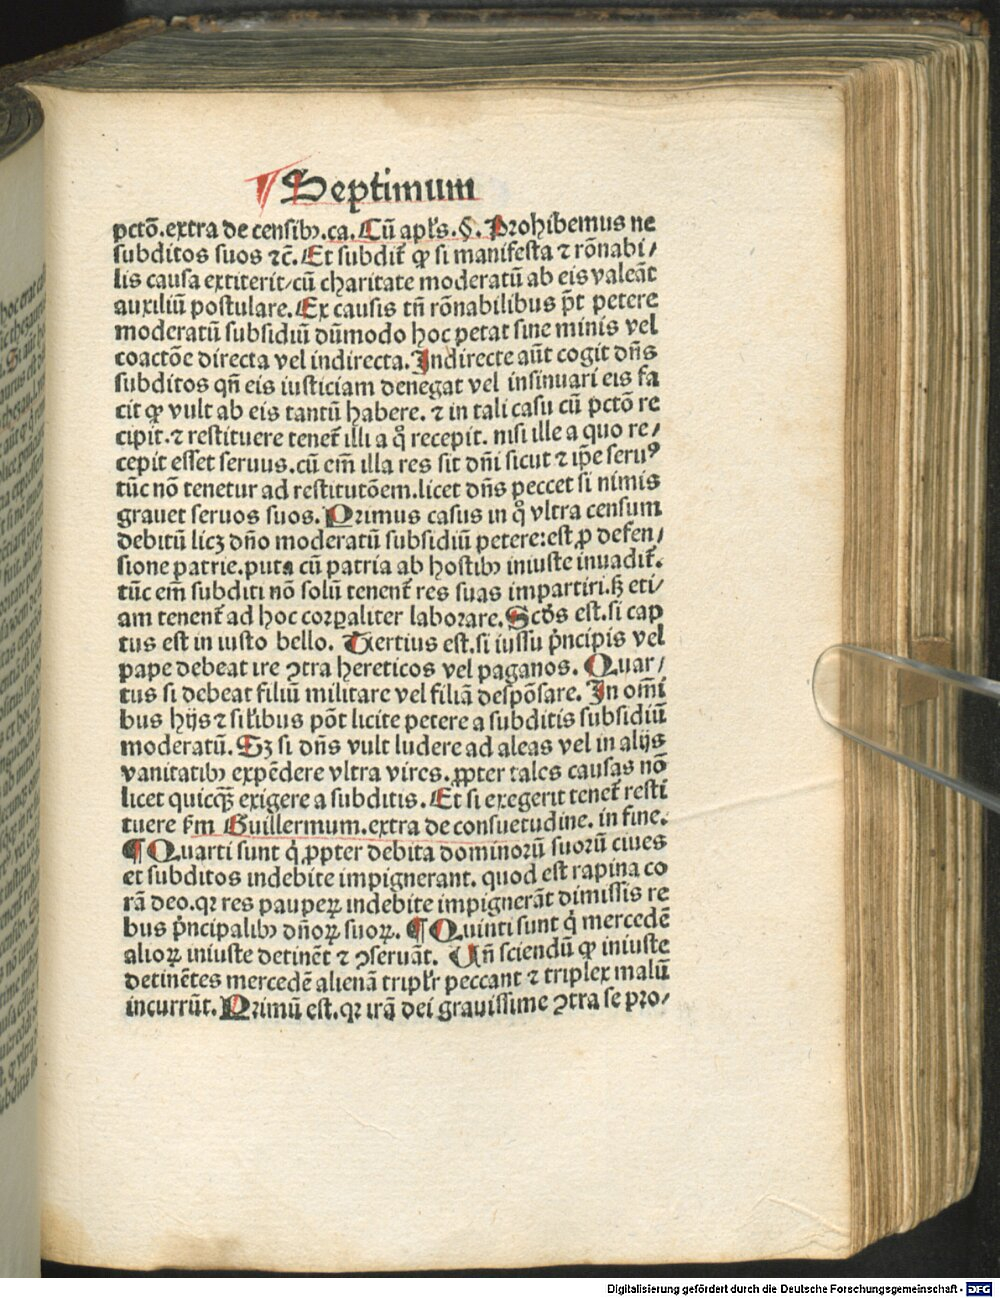 ¶ Septimum
pctō.extra de censibꝫ.ca.Cū apl's.§.Prohibemus ne
subditos suos ⁊c̄.Et subdit̄ ꝙ si manifesta ⁊ rōnabi/
lis causa extiterit/cū charitate moderatū ab eis valeāt
auxiliū postulare.Ex causis tn̄ rōnabilibus pn̄t petere
moderatū subsidiū dūmodo hoc petat sine minis vel
coactōe directa vel indirecta.Indirecte aūt cogit dn̄s
subditos qn̄ eis iusticiam denegat vel insinuari eis fa
cit ꝙ vult ab eis tantū habere. ⁊ in tali casu cū pctō re
cipit.⁊ restituere tenet̄ illi a q̊ recepit. nisi ille a quo re/
cepit esset seruus.cū em̄ illa res sit dn̄i sicut ⁊ ip̄e seruꝰ
tūc nō tenetur ad restitutōem.licet dn̄s peccet si nimis
grauet seruos suos.Primus casus in q̊ vltra censum
debitū licꝫ dn̄o moderatū subsidiū petere:est ꝓ defen/
sione patrie.puta cū patria ab hostibꝫ iniuste inuadit̄.
tūc em̄ subditi nō solū tenent̄ res suas impartiri.sꝫ eti/
am tenent̄ ad hoc corꝑaliter laborare.Scd̄s est.si cap
tus est in iusto bello. Tertius est.si iussu pn̄cipis vel
pape debeat ire ꝯtra hereticos vel paganos. Quar/
tus si debeat filiū militare vel filiā despōsare. In om̄i
bus hijs ⁊ sil'ibus pōt licite petere a subditis subsidiū
moderatū.Sꝫ si dn̄s vult ludere ad aleas vel in alijs
vanitatibꝫ expēdere vltra vires.ꝓpter tales causas nō
licet quicqꝫ exigere a subditis. Et si exegerit tenet̄ resti
tuere ẜm Guillermum.extra de consuetudine. in fine.
¶ Quarti sunt q̇ ꝓpter debita dominorū suorū ciues
et subditos indebite impignerant. quod est rapina co
rā deo.qꝛ res pauperꝝ indebite impignerāt dimissis re
bus pn̄cipalibꝫ dn̄oꝝ suoꝝ. ¶ Quinti sunt q̇ mercedē
alioꝝ iniuste detinēt ⁊ ꝯseruāt. Un̄ sciendū ꝙ iniuste
detinētes mercedē alienā tripl'r peccant ⁊ triplex malū
incurrūt. Primū est.qꝛ irā dei grauissime ꝯtra se pro/
Digitalisierung gefördert durch die Deutsche Forschungsgemeinschaft - DFG